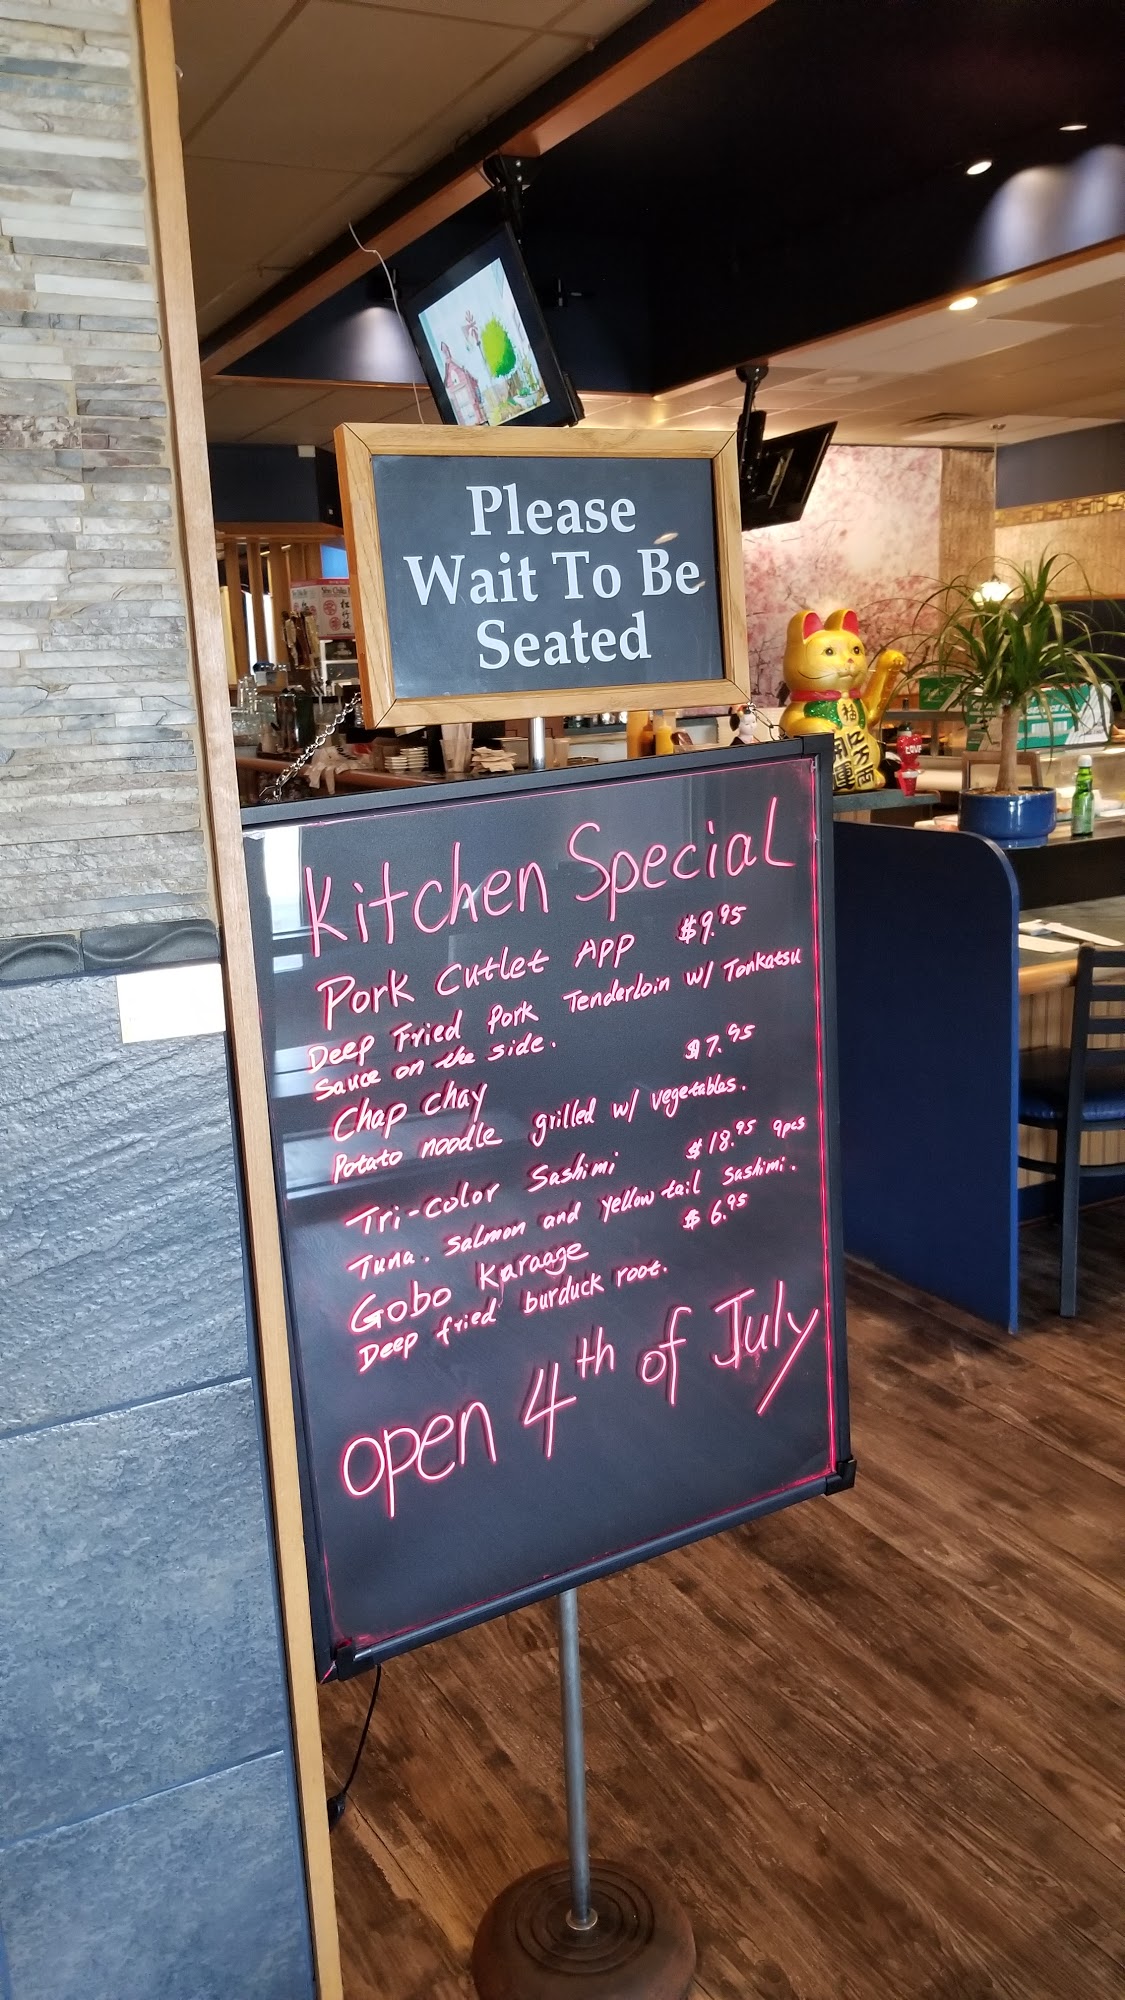 Please
Wait To Be
Seated
Kitchen Special
Pork Cutlet App $9.95
Deep Fried Pork Tenderloin w/ Tonkatsu
Sauce on the side.
Chap chay $7.95
Potato noodle grilled w/ vegetables.
Tri-color Sashimi $18.95 9pcs
Tuna. Salmon and yellow tail Sashimi.
Gobo Karaage $6.95
Deep fried burduck root.
open 4th of July
福
開運
千万両
LOVE
松竹梅